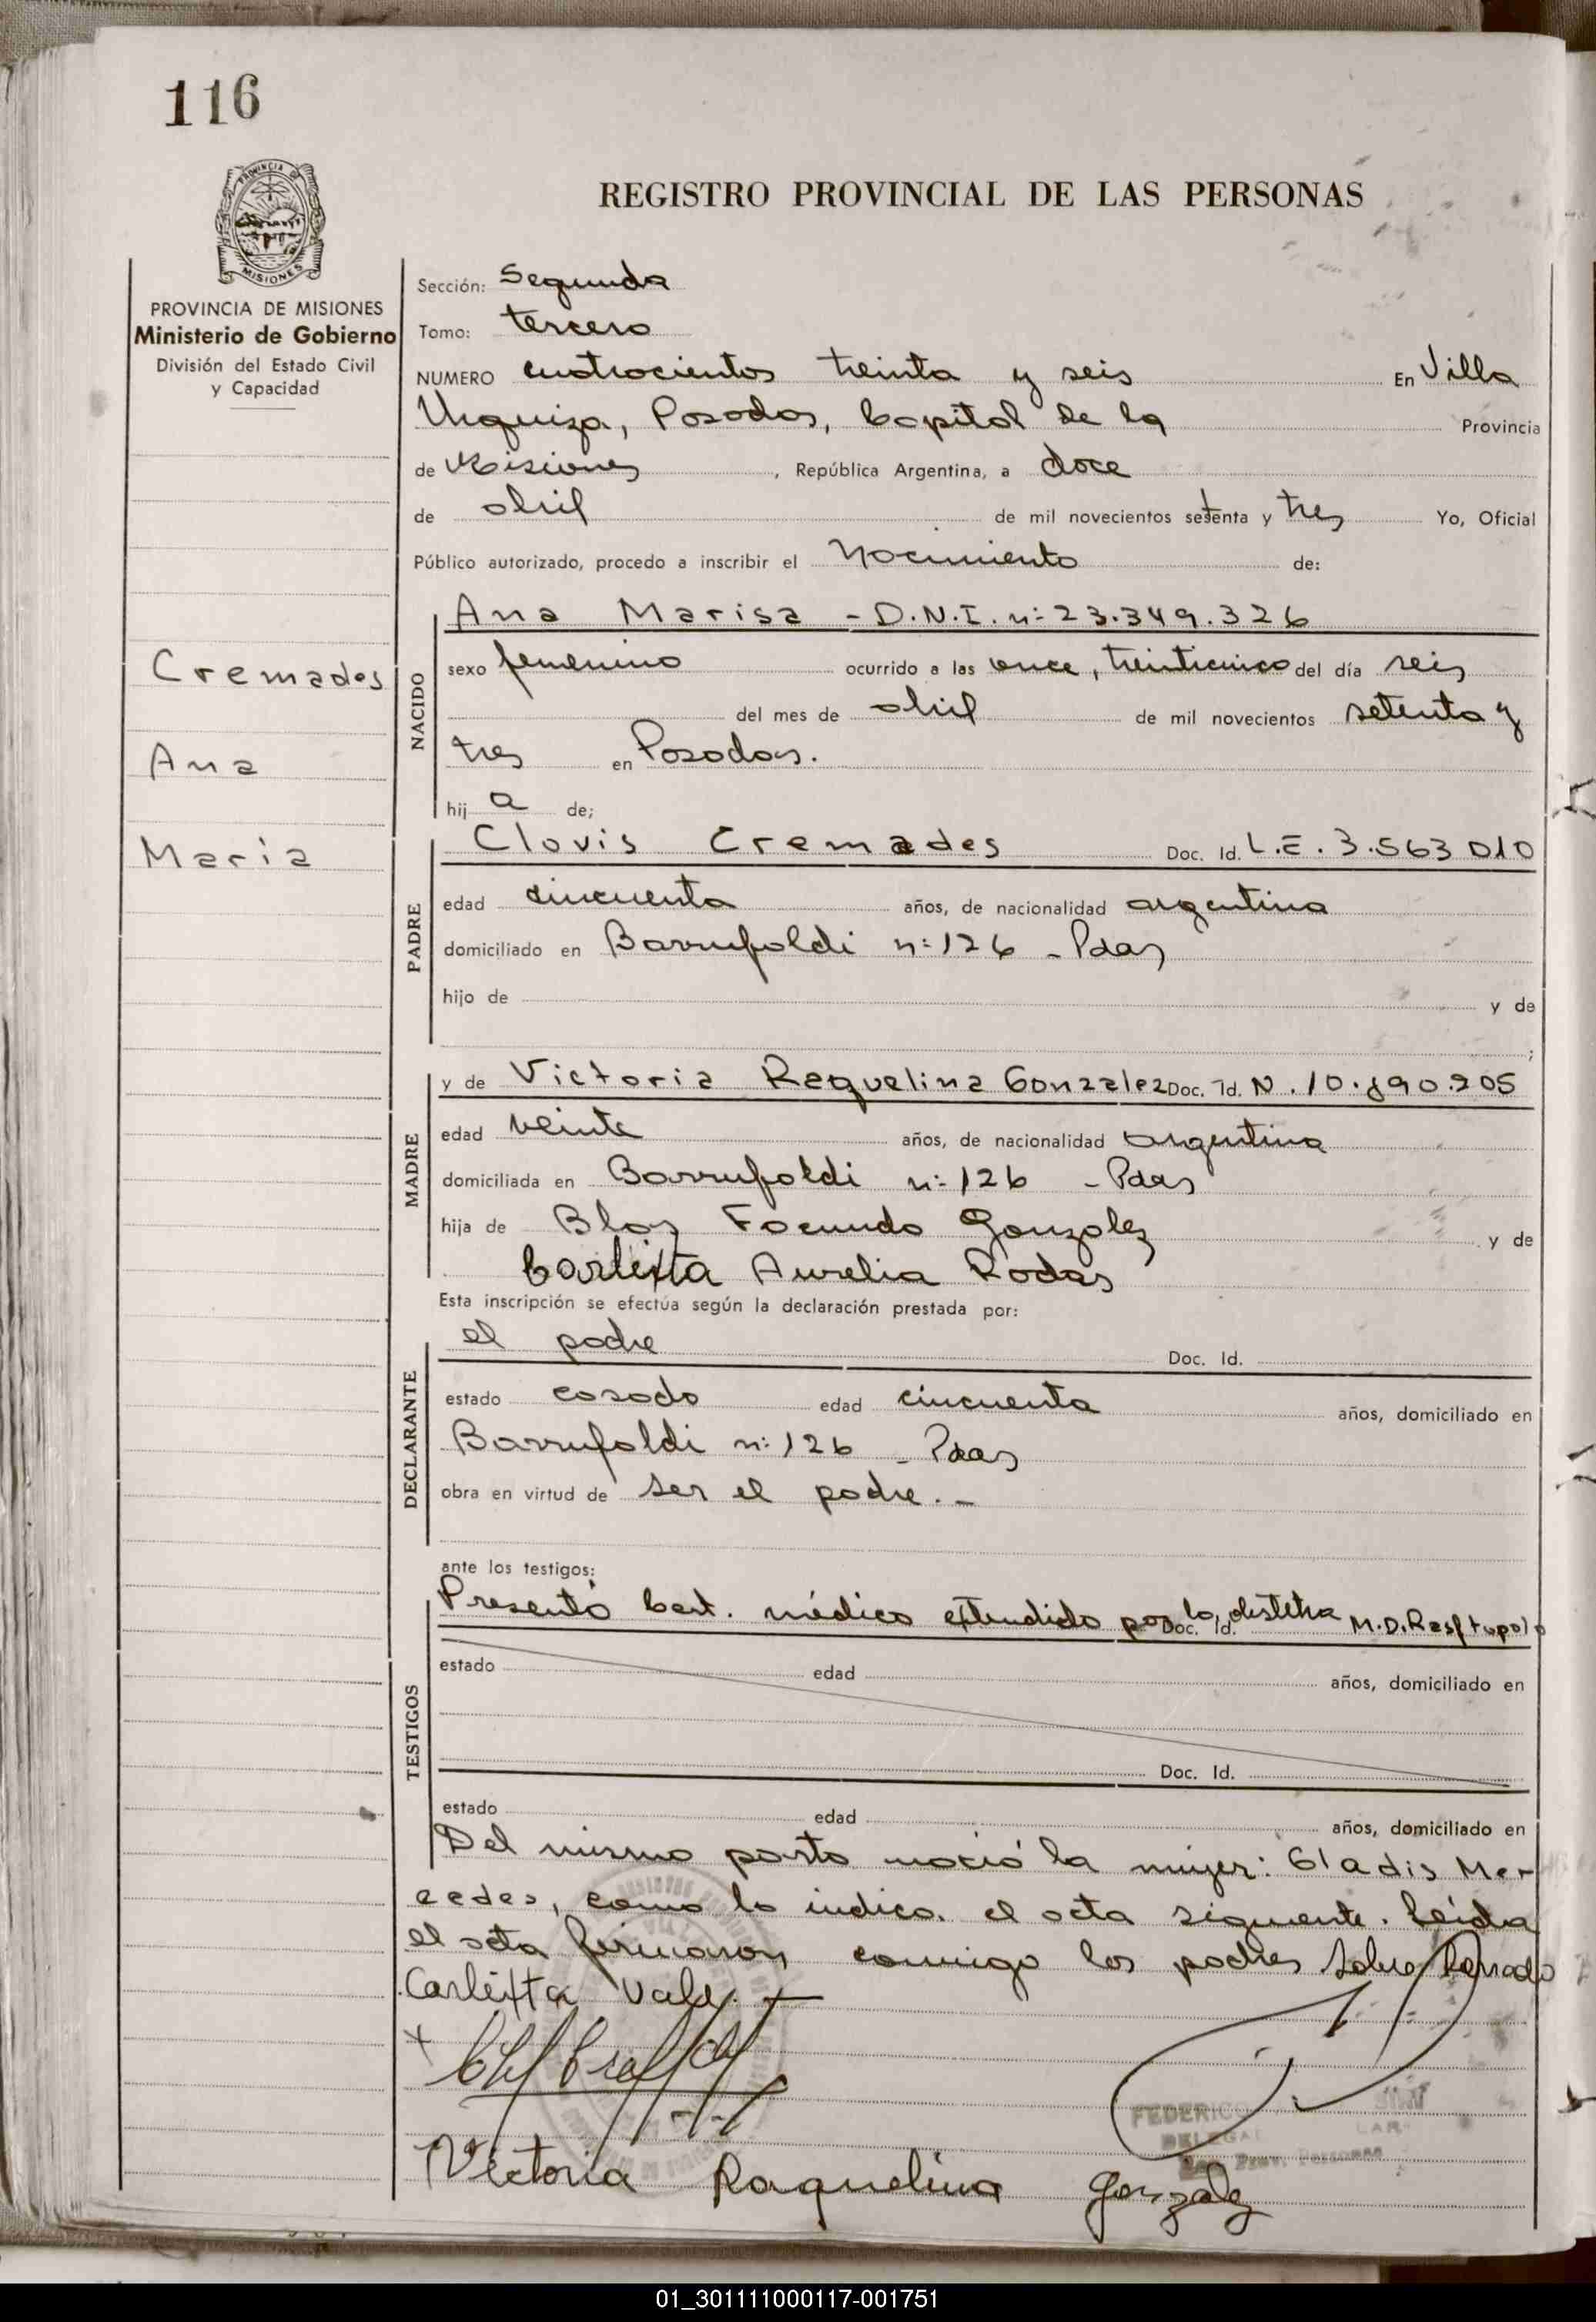 116
REGISTRO PROVINCIAL DE LAS PERSONAS
PROVINCIA DE MISIONES
MISIONES
PROVINCIA DE MISIONES
Ministerio de Gobierno
División del Estado Civil
y Capacidad
Cremades
Ana
Maria
Sección: Segunda
Tomo: tercero
NUMERO cuatrocientos treinta y seis En Villa
Urquiza, Posadas, Capital de la Provincia
de Misiones, República Argentina, a doce
de abril de mil novecientos setenta y tres Yo, Oficial
Público autorizado, procedo a inscribir el Nacimiento de:
NACIDO
Ana Marisa - D.N.I. nº 23.349.326
sexo femenino ocurrido a las once, treinticinco del día seis
del mes de abril de mil novecientos setenta y
tres en Posadas.
hija de;
PADRE
Clovis Cremades Doc. Id. L.E. 3.563.010
edad cincuenta años, de nacionalidad argentina
domiciliado en Barrufaldi nº 126 - Pdas
hijo de y de
;
MADRE
y de Victoria Raquelina Gonzalez Doc. Id. N. 10.890.205
edad veinte años, de nacionalidad argentina
domiciliada en Barrufaldi nº 126 - Pdas
hija de Blas Facundo Gonzalez y de
Carlixta Aurelia Rodas
Esta inscripción se efectúa según la declaración prestada por:
DECLARANTE
el padre Doc. Id.
estado casado edad cincuenta años, domiciliado en
Barrufaldi nº 126 - Pdas
obra en virtud de ser el padre. -
ante los testigos:
TESTIGOS
Presentó Cert. médico extendido por la obstetra M.D. Doc. Id.
estado edad años, domiciliado en
Doc. Id.
estado edad años, domiciliado en
Del mismo parto nació la mujer: Gladis Mer
cedes, como lo indica el acta siguiente. Leída
el acta firmaron conmigo los padres Sobre Borrado
Carlixta Vale. -
x
FEDERICO
DELEGA
LAR
Prov. Personas
Victoria Raquelina Gonzalez
01_301111000117-001751